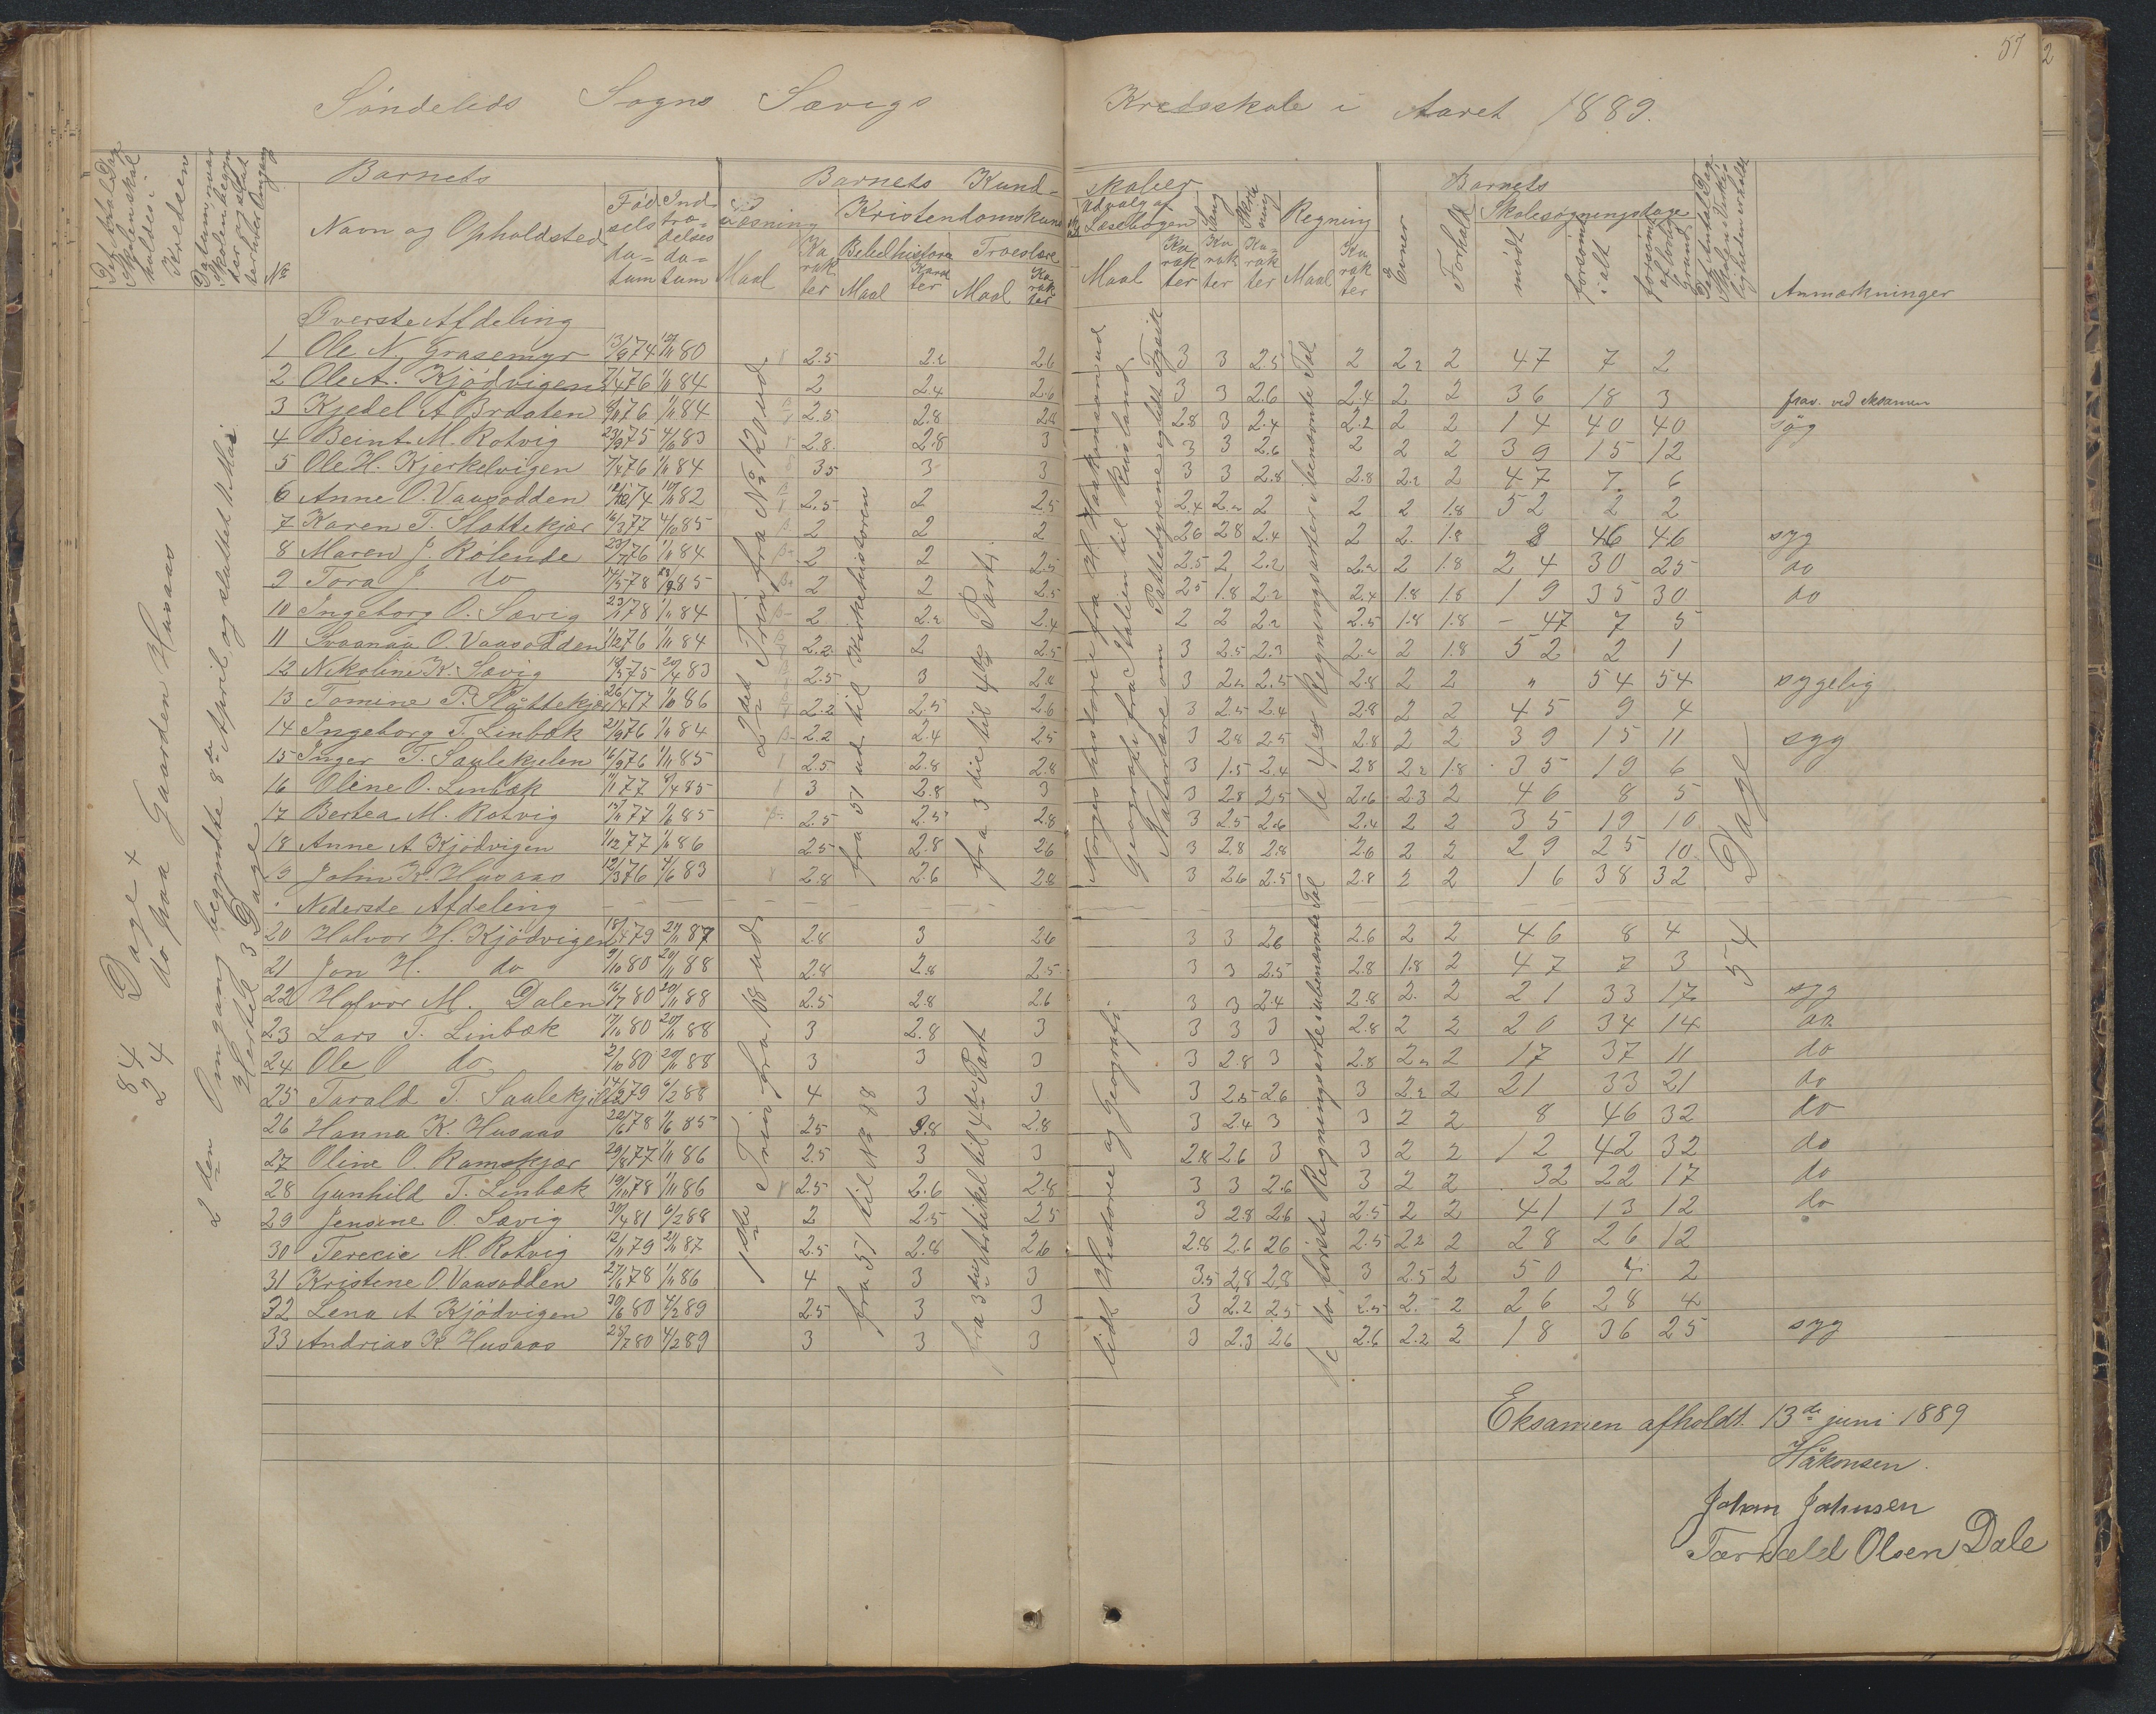 57
2
Söndelids Sogns Sævigs Kredsskole i Aaret 1889.
Det Antal Dage Skolen skal holdes i Kredsen
Datum naar Skolen begynder og slutter hver Omgang
No
Barnets
Navn og Opholdsted
Fødselsdatum
Indtrædelsesdatum
Barnets Kundskaber
Læsning
Maal
Karakter
Kristendomskund
Bibelhistorie
Maal
Karakter
Troeslære
Maal
Karakter
Udvalg af Læsebogen
Maal
Karakter
Sang
Karakter
Skrivning
Karakter
Regning
Maal
Karakter
Evner
Forhold
Barnets Skolesøgningsdage
mødt
forsømt i alt
forsømt af lovlig Grund
Det Antal Dage Skolen i Virkeligheden er holdt
Anmærkninger
84 Dage
24 do paa Gaarden Husaas
2den Omgang begyndte 8de April og sluttet 11 Mai
Hertil 3 Dage
Øverste Afdeling
1 Ole N. Grasemyr 13/9 74 19/11 80 2.5 2.2 2.6 3 3 2.5 2 2.2 2 47 7 2
2 Ole A. Kjödvigen 7/4 76 1/11 84 2 2.4 2.6 3 3 2.6 2.4 2 2 36 18 3 frav. ved eksamen
3 Kjedel A Braaten 6/11 76 1/11 84 2.5 2.8 2.8 2.8 3 2.4 2.2 2 2 14 40 40 syg
4 Beint M. Rotvig 23/9 75 4/6 83 2.8 2.8 3 3 3 2.6 2 2 2 39 15 12
5 Ole H. Kjerkelvigen 7/4 76 1/11 84 3.5 3 3 3 3 2.8 2.8 2.2 2 47 7 6
6 Anne O. Vaasodden 74 19/11 82 2.5 2 2.5 2.4 2.2 2 2 2 1.8 52 2 2
7 Karen T. Slottekjær 16/3 77 4/10 85 2 2 2 2.6 2.8 2.4 2 2 1.8 8 46 46 syg
8 Maren J. Rölende 23/7 76 1/11 84 2 2 2.5 2.5 2 2.2 2.2 2 1.8 24 30 25 do
9 Tora J. do 14/5 78 85 2 2 2.5 2.5 1.8 2.2 2.4 1.8 1.8 19 35 30 do
10 Ingeborg O. Sævig 23/1 78 1/11 84 2 2.2 2.4 2 2 2.2 2.5 1.8 1.8 47 7 5
11 Svaanaug O. Vaasodden 1/12 76 1/11 84 2.2 2 2.5 3 2.5 2.3 2.2 2 1.8 52 2 1
12 Nikoline K. Sævig 75 20/4 83 2.5 3 2.8 3 2.2 2.5 2.8 2 2 " 54 54 sygelig
13 Tomine P. Slottekjær 26/4 77 1/6 86 2.2 2.5 2.6 3 2.5 2.4 2.8 2 2 45 9 4
14 Ingeborg T. Linbæk 21/9 76 1/11 84 2.2 2.4 2.5 3 2.8 2.5 2.8 2 2 39 15 11 syg
15 Inger T. Saulekilen 16/9 76 1/11 85 2.5 2.8 2.8 3 1.5 2.4 2.8 2.2 1.8 35 19 6
16 Oline O. Linbæk 77 8/4 85 3 2.8 3 3 2.8 2.5 2.6 2.3 2 46 8 5
17 Bertea M. Rotvig 77 1/6 85 2.5 2.5 2.8 3 2.5 2.6 2.4 2 2 35 19 10
18 Anne A Kjödvigen 1/12 77 1/6 86 2.5 2.8 2.6 3 2.8 2.8 2.6 2 2 29 25 10
19 John K. Husaas 12/3 76 4/6 83 2.8 2.6 2.8 3 2.6 2.5 2.8 2 2 16 38 32
Nederste Afdeling
20 Halvor H. Kjödvigen 18/4 79 29/11 87 2.8 3 2.6 3 3 2.6 2.6 2 2 46 8 4
21 Jon H. do 9/10 80 20/11 88 2.8 2.8 2.5 3 3 2.5 2.8 1.8 2 47 7 3
22 Halvor M. Dalen 16/7 80 20/11 88 2.5 2.8 2.6 3 3 2.4 2.8 2 2 21 33 17 syg
23 Lars T. Linbæk 17/10 80 20/11 88 3 2.8 3 3 3 3 2.8 2 2 20 34 14 do
24 Ole O do 2/10 80 20/11 88 3 3 3 3 2.8 3 2.8 2.2 2 17 37 11 do
25 Tarald T. Saulekilen 79 6/2 88 4 3 3 3 2.5 2.6 3 2.2 2 21 33 21 do
26 Hanna K. Husaas 22/6 78 1/6 85 2.5 2.8 2.8 3 2.4 3 3 2 2 8 46 32 do
27 Oline O. Ramskjær 20/8 77 1/11 86 2.5 3 3 2.8 2.6 3 3 2 2 12 42 32 do
28 Gunhild T. Linbæk 19/11 78 1/11 86 2.5 2.6 2.8 3 3 2.6 3 2 2 32 22 17 do
29 Jensine O. Sævig 30/4 81 6/2 88 2 2.5 2.5 3 2.8 2.6 2.5 2 2 41 13 12 do
30 Terecie M. Rotvig 12/11 79 21/11 87 2.5 2.8 2.6 2.8 2.6 2.6 2.5 2.2 2 28 26 12
31 Kristene O. Vaasodden 27/6 78 1/11 86 4 3 3 3.5 2.8 2.8 3 2.5 2 50 4 2
32 Lena A Kjödvigen 30/6 80 4/2 89 2.5 3 3 3 2.2 2.5 2.5 2 2 26 28 4
33 Andrias K. Husaas 25/7 80 4/2 89 3 3 3 3 2.3 2.6 2.6 2.2 2 18 36 25 syg
2det Trin fra No 120 ud
fra 51 ud til Kirkehistorien
fra 3die til 4de Part.
Norgeshistorie fra H. Haakonsson ud
Geografi fra Italien til Rusland
Naturlære om Pattedyrene og lidt Fysik
de 4 Regningsarter i benævnte Tal
54 Dage
1ste Trin fra 68 ud
fra 51 til No 88
fra 3die Artikel til 4de Part
lidt Historie og Geografi.
de to første Regningsarter i ubenævnte Tal
Eksamen afholdt 13de juni 1889
Håkonsen.
Johan Johnsen
Tarkæld Olsen Dale